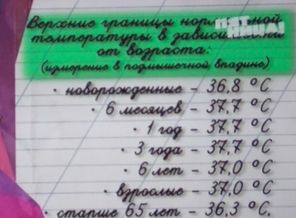 Верхние границы нормальной
температуры в зависимости
от возраста:
(измерение в подмышечной впадине)
· новорожденные - 36,8 °C
· 6 месяцев - 37,7 °C
· 1 год - 37,7 °C
· 3 года - 37,7 °C
· 6 лет - 37,0 °C
· взрослые - 37,0 °C
· старше 65 лет - 36,3 °C